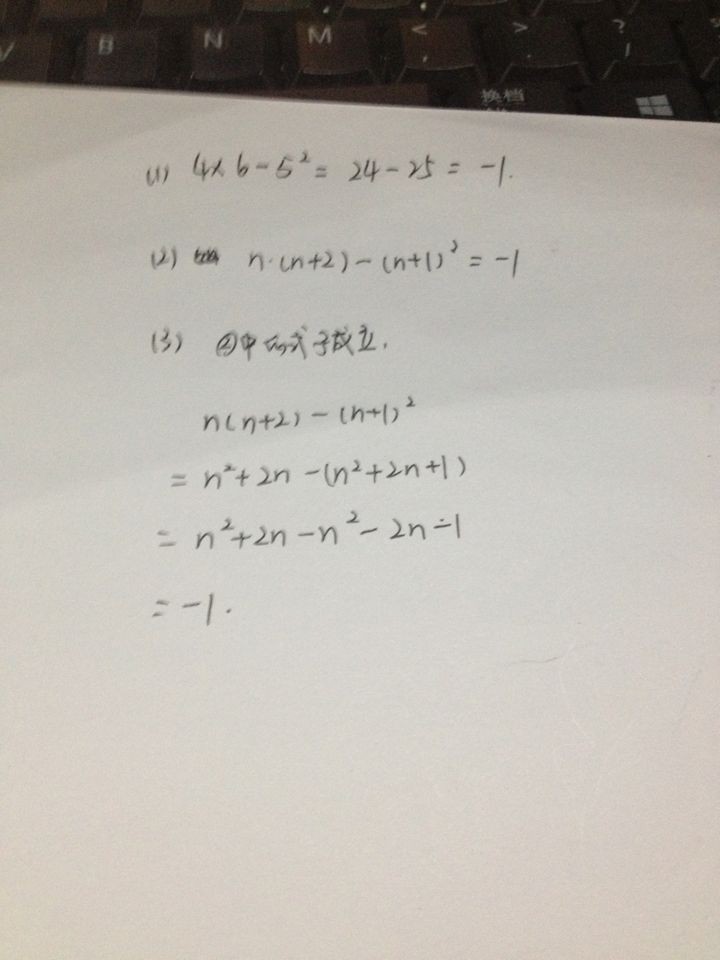 V B N M < , > . ? /
换档
(1) 4×6-5²= 24-25 = -1.
(2) n·(n+2)-(n+1)²=-1
(3) ②中的式子成立.
n(n+2)-(n+1)²
= n²+2n-(n²+2n+1)
= n²+2n-n²-2n-1
=-1.